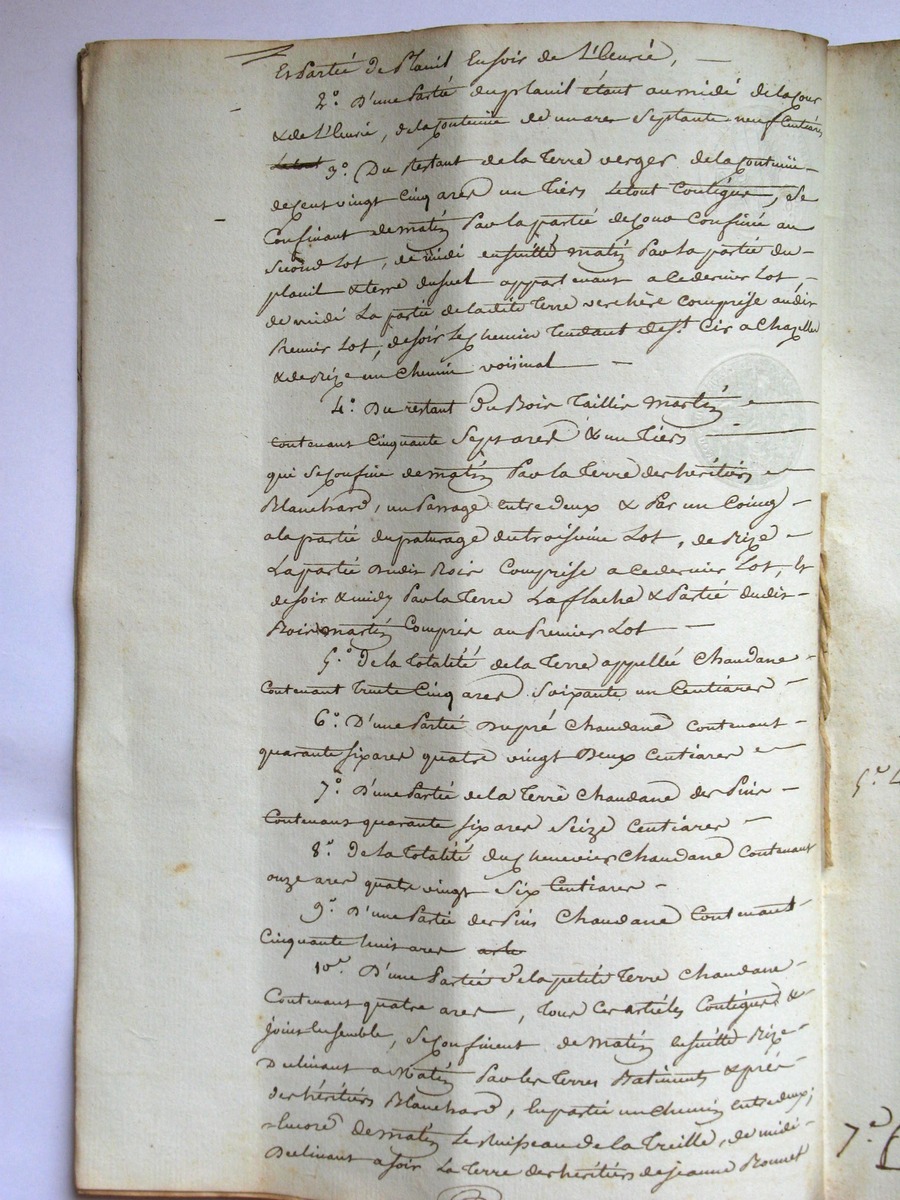 Et Partié de Plauil Ensoir de L'Ecurié, —
2°. D'une Partié du plauil étant au midé de la Cour
& de L'Ecurié, de la Contenüe de un ares Septante neuf Centiares
3°. Du Restant de la Terre verger de la Contenüe
de Cent vingt Cinq ares un Tiers Le tout Contigue, Se
Confinant de matin Par la partié de Cour Confinée au
Second Lot, de midé ensuitté matin Par la partie du
plauil & terre dusuel appartenant a Ce dernier Lot
de midé La partié de la ditte Terre verchère Comprise audit
Premier Lot, de soir Le Chemin Tendant de St. Cir a Chazelles
& de Bize un Chemin voisinal —
4°. Du restant Du Bois Taillis Martin
Contenant Cinquante Sept ares & un Tiers
qui Se Confine de matin Par la Terre des héritiers
Blanchard, un Passage entre deux & Par un Coing
a la partié du paturage du troisième Lot, de Bize
La partié dudit Bois Comprise a Ce dernier Lot, Et
de soir & midy Par la Terre La flache & Partié dudit
Bois martin Compris au Premier Lot —
5°. De la Totalité de la Terre appellée Chaudane
Contenant Trente Cinq ares Soixante un Centiares
6°. D'une Partié Du pré Chaudane Contenant
quarante six ares quatre vingt Deux Centiares
7°. D'une Partié de la Terre Chaudane des Pins
Contenant quarante six ares Seize Centiares
8°. De la Totalité du Chenevier Chaudane Contenant
onze ares quatre vingt Six Centiares
9°. D'une Partié des Pins Chaudane Contenant
Cinquante huit ares
10°. D'une Partié de la petite Terre Chaudane
Contenant quatre ares, Tous Ces articles Contigues &
joints Ensemble, Se Confinent de Matin ensuitte Bize
Declinant a Matin Par les Terres Batiments & pré
des héritiers Blanchard, En partié un Chemin entre deux;
Encore de matin Le Ruisseau de la Treille, de midi
Declinant a soir La Terre des héritiers de jeanne Bonnet
5°. L
7°.